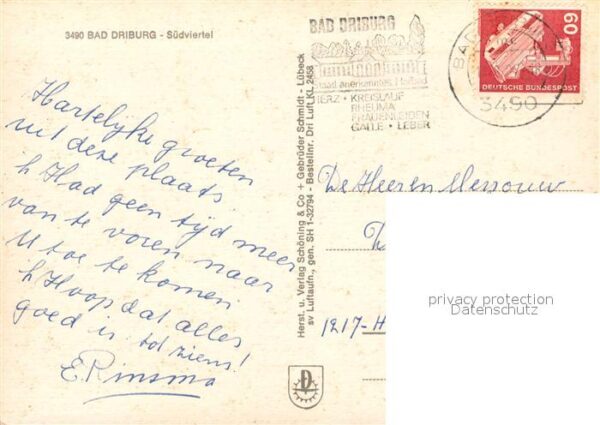 3490 BAD DRIBURG - Südviertel
Hartelijke groeten
uit deze plaats.
k Had geen tijd meer
van te voren naar
U toe te komen
k Hoop dat alles
goed is. tot ziens!
Herst. u. Verlag Schöning & Co + Gebrüder Schmidt - Lübeck
sv Luftaufn., gen. SH 1-32794 - Bestellnr. Dri Luft.KL 2458
BAD DRIBURG
staatl. anerkanntes Heilbad
HERZ · KREISLAUF
RHEUMA
FRAUENLEIDEN
GALLE · LEBER
BAD
3490
60
DEUTSCHE BUNDESPOST
De Heeren Messouw
1217-H
privacy protection
Datenschutz